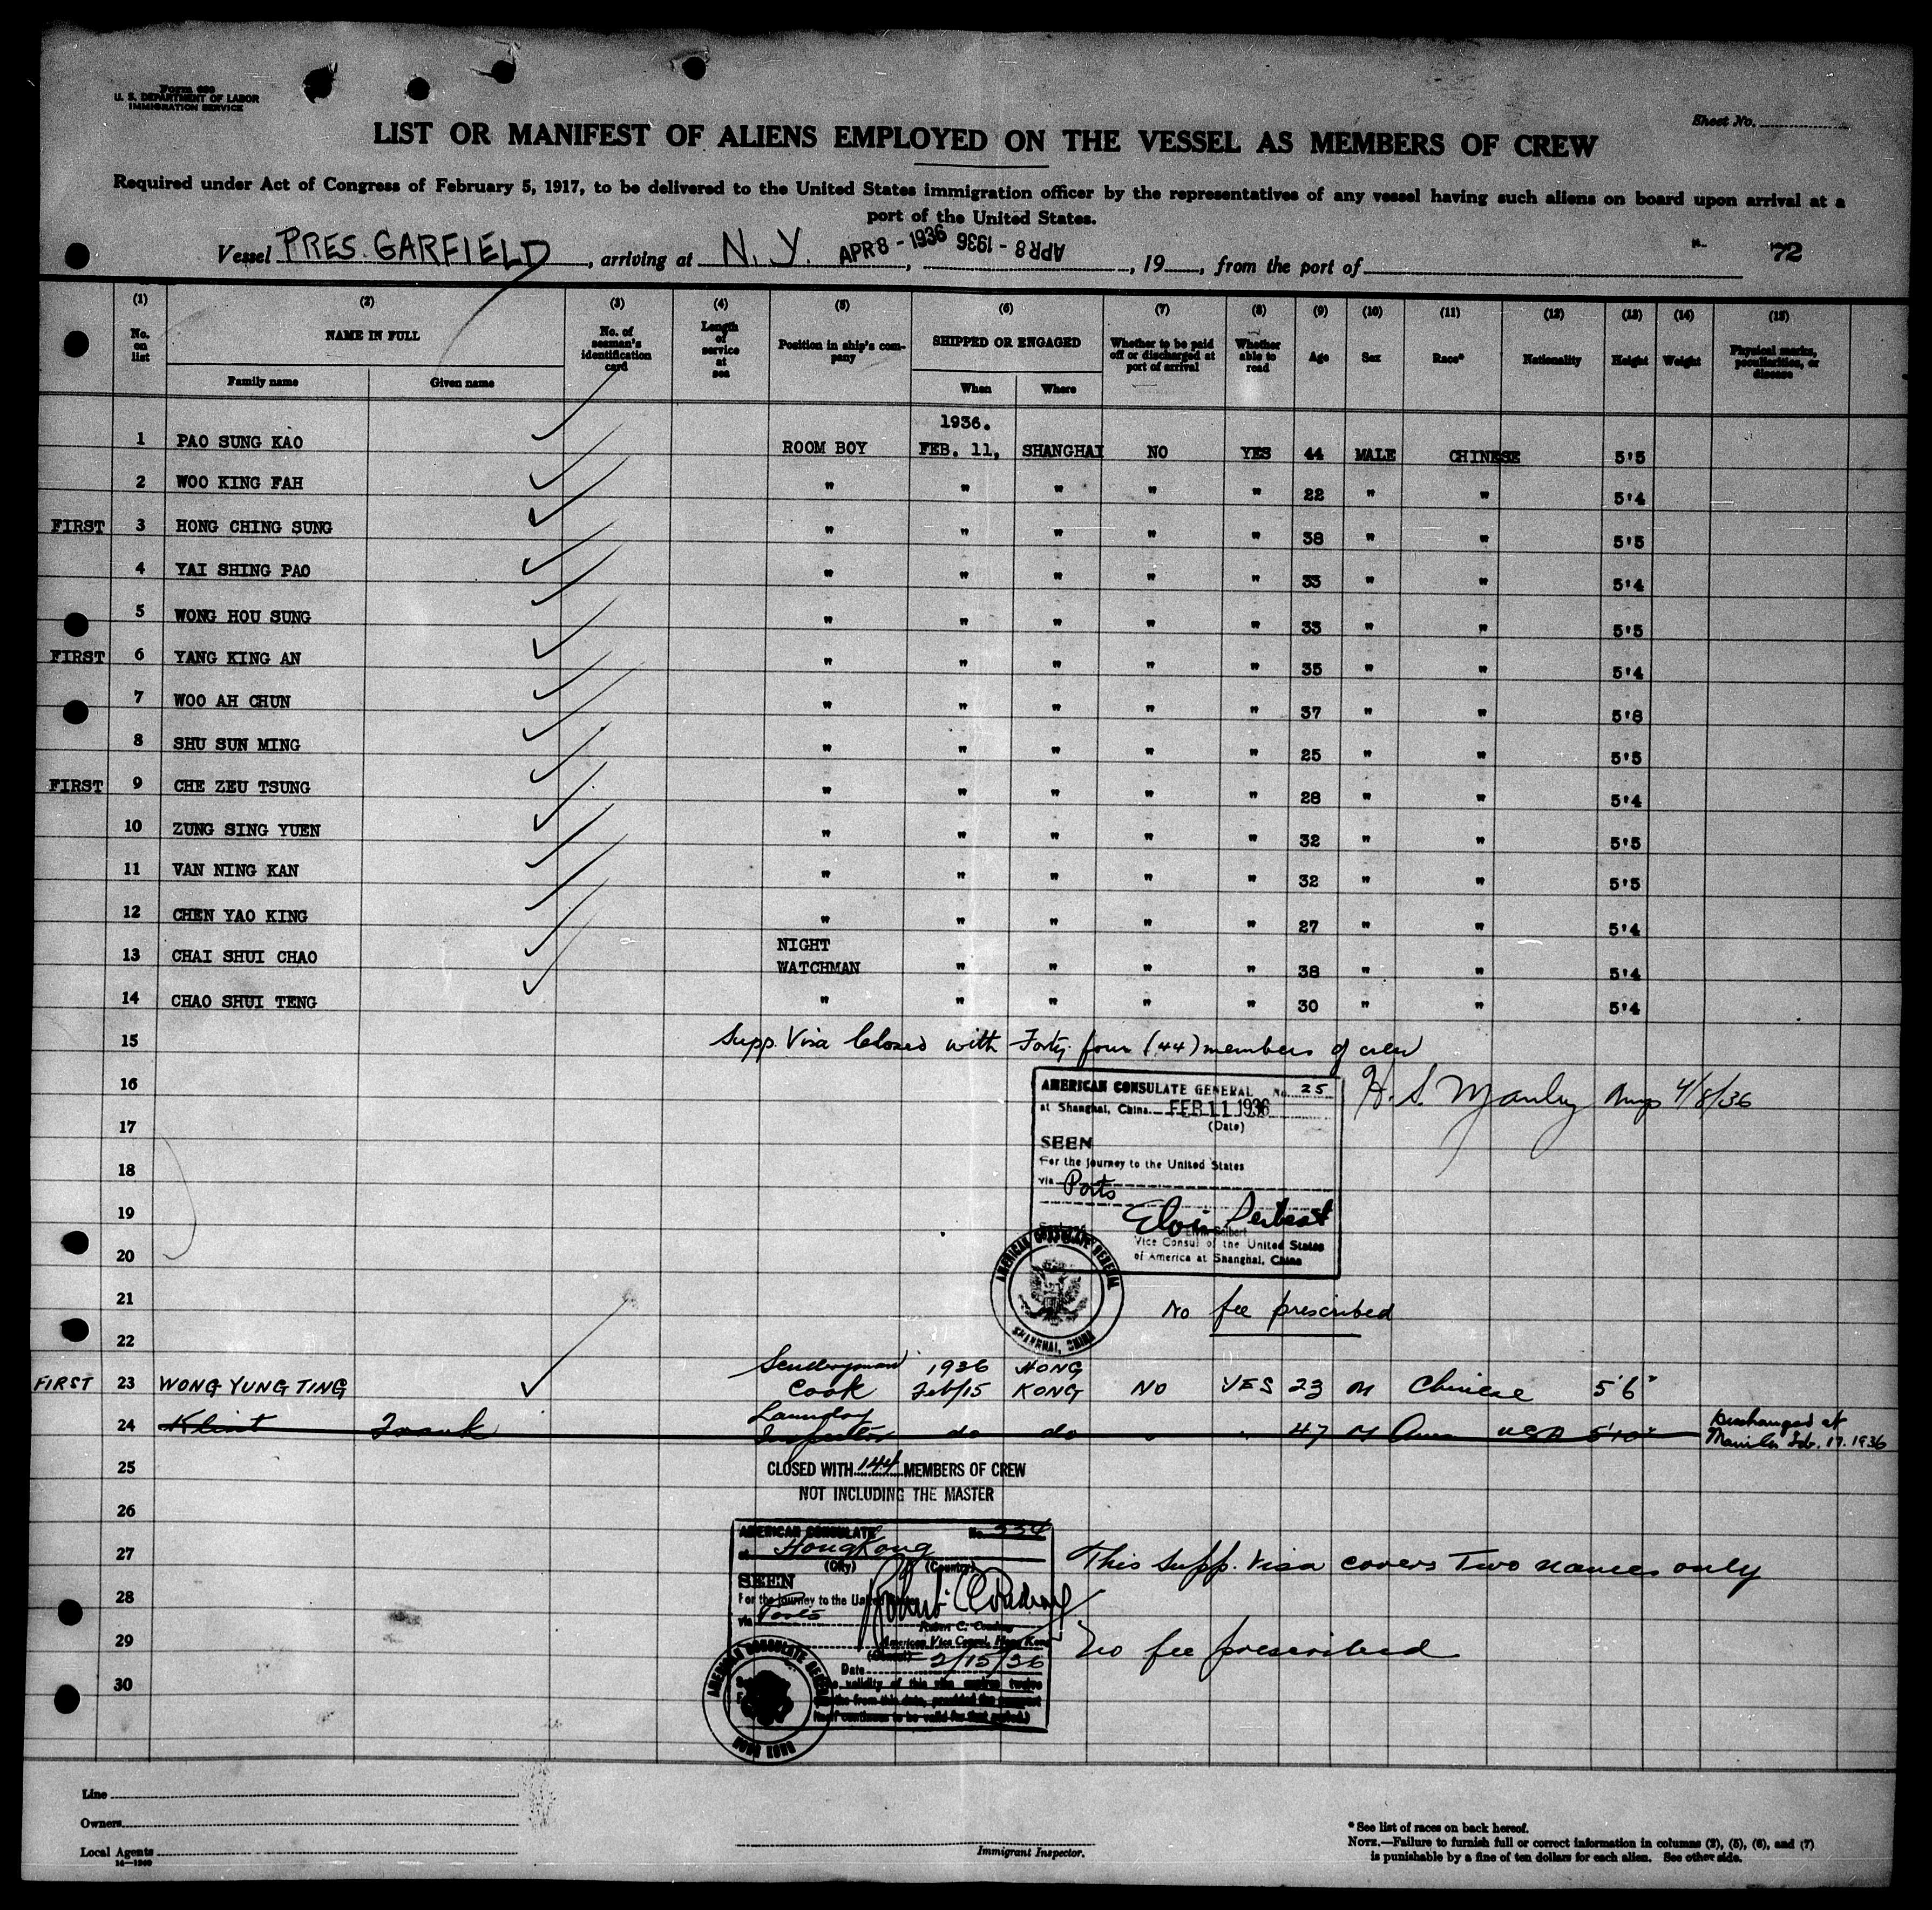 Form 680
U. S. DEPARTMENT OF LABOR
IMMIGRATION SERVICE
Sheet No.
LIST OR MANIFEST OF ALIENS EMPLOYED ON THE VESSEL AS MEMBERS OF CREW
Required under Act of Congress of February 5, 1917, to be delivered to the United States immigration officer by the representatives of any vessel having such aliens on board upon arrival at a
port of the United States.
Vessel PRES. GARFIELD, arriving at N. Y. APR 8 - 1936, APR 8 - 1936, 19, from the port of 72
(1) (2) (3) (4) (5) (6) (7) (8) (9) (10) (11) (12) (13) (14) (15)
No. on list NAME IN FULL Family name Given name No. of seaman's identification card Length of service at sea Position in ship's company SHIPPED OR ENGAGED When Where Whether to be paid off or discharged at port of arrival Whether able to read Age Sex Race* Nationality Height Weight Physical marks, peculiarities, or disease
1936.
1 PAO SUNG KAO ROOM BOY FEB. 11, SHANGHAI NO YES 44 MALE CHINESE 5'5
2 WOO KING FAH " " " " " 22 " " 5'4
FIRST 3 HONG CHING SUNG " " " " " 38 " " 5'5
4 YAI SHING PAO " " " " " 33 " " 5'4
5 WONG HOU SUNG " " " " " 33 " " 5'5
FIRST 6 YANG KING AN " " " " " 35 " " 5'4
7 WOO AH CHUN " " " " " 37 " " 5'8
8 SHU SUN MING " " " " " 25 " " 5'5
FIRST 9 CHE ZEU TSUNG " " " " " 28 " " 5'4
10 ZUNG SING YUEN " " " " " 32 " " 5'5
11 VAN NING KAN " " " " " 32 " " 5'5
12 CHEN YAO KING " " " " " 27 " " 5'4
13 CHAI SHUI CHAO NIGHT WATCHMAN " " " " 38 " " 5'4
14 CHAO SHUI TENG " " " " " 30 " " 5'4
15 Supp. Visa Closed with Forty four (44) members of crew
16 AMERICAN CONSULATE GENERAL No. 25
H. S. Manley 4/8/36
at Shanghai, China FEB 11 1936
17 (Date)
SEEN
18 For the journey to the United States
via Ports
19
Vice Consul of the United States
20 of America at Shanghai, China
AMERICAN CONSULATE GENERAL
SHANGHAI, CHINA
21 No fee prescribed
22
FIRST 23 WONG YUNG TING Cook 1936 Feb/15 HONG KONG NO YES 23 M Chinese 5'6"
24 Klint Frank Laundry Inspector do do 47 M USA 5'10" Discharged at Manila Feb. 17. 1936
25 CLOSED WITH 144 MEMBERS OF CREW
NOT INCLUDING THE MASTER
26
AMERICAN CONSULATE No. 334
27 at HongKong
This Supp. Visa covers Two names only
(City) (Country)
SEEN
28 For the journey to the United States
via Ports
Robert C. Coudray
29 American Vice Consul, Hong Kong
No fee prescribed
Date 2/15/36
30 The validity of this visa expires twelve
months from this date, provided the passport
itself continues to be valid for that period.)
AMERICAN CONSULATE GENERAL
HONG KONG
Line
Owners
Local Agents
14—1240
Immigrant Inspector.
* See list of races on back hereof.
NOTE.—Failure to furnish full or correct information in columns (2), (5), (6), and (7)
is punishable by a fine of ten dollars for each alien. See other side.